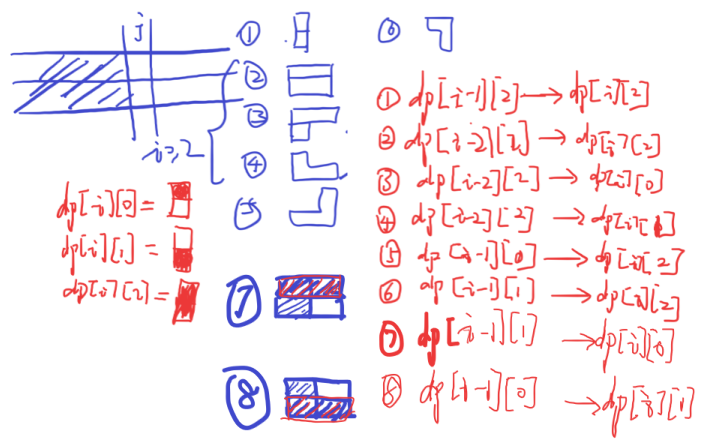 j
①
②
③
④
⑤
i>,2
⑥
dp[i][0]=
dp[i][1]=
dp[i][2]=
⑦
⑧
① dp[i-1][2]→dp[i][2]
② dp[i-2][2]→dp[i][2]
③ dp[i-2][2]→dp[i][0]
④ dp[i-2][2]→dp[i][1]
⑤ dp[i-1][0]→dp[i][2]
⑥ dp[i-1][1]→dp[i][2]
⑦ dp[i-1][1]→dp[i][0]
⑧ dp[i-1][0]→dp[i][1]